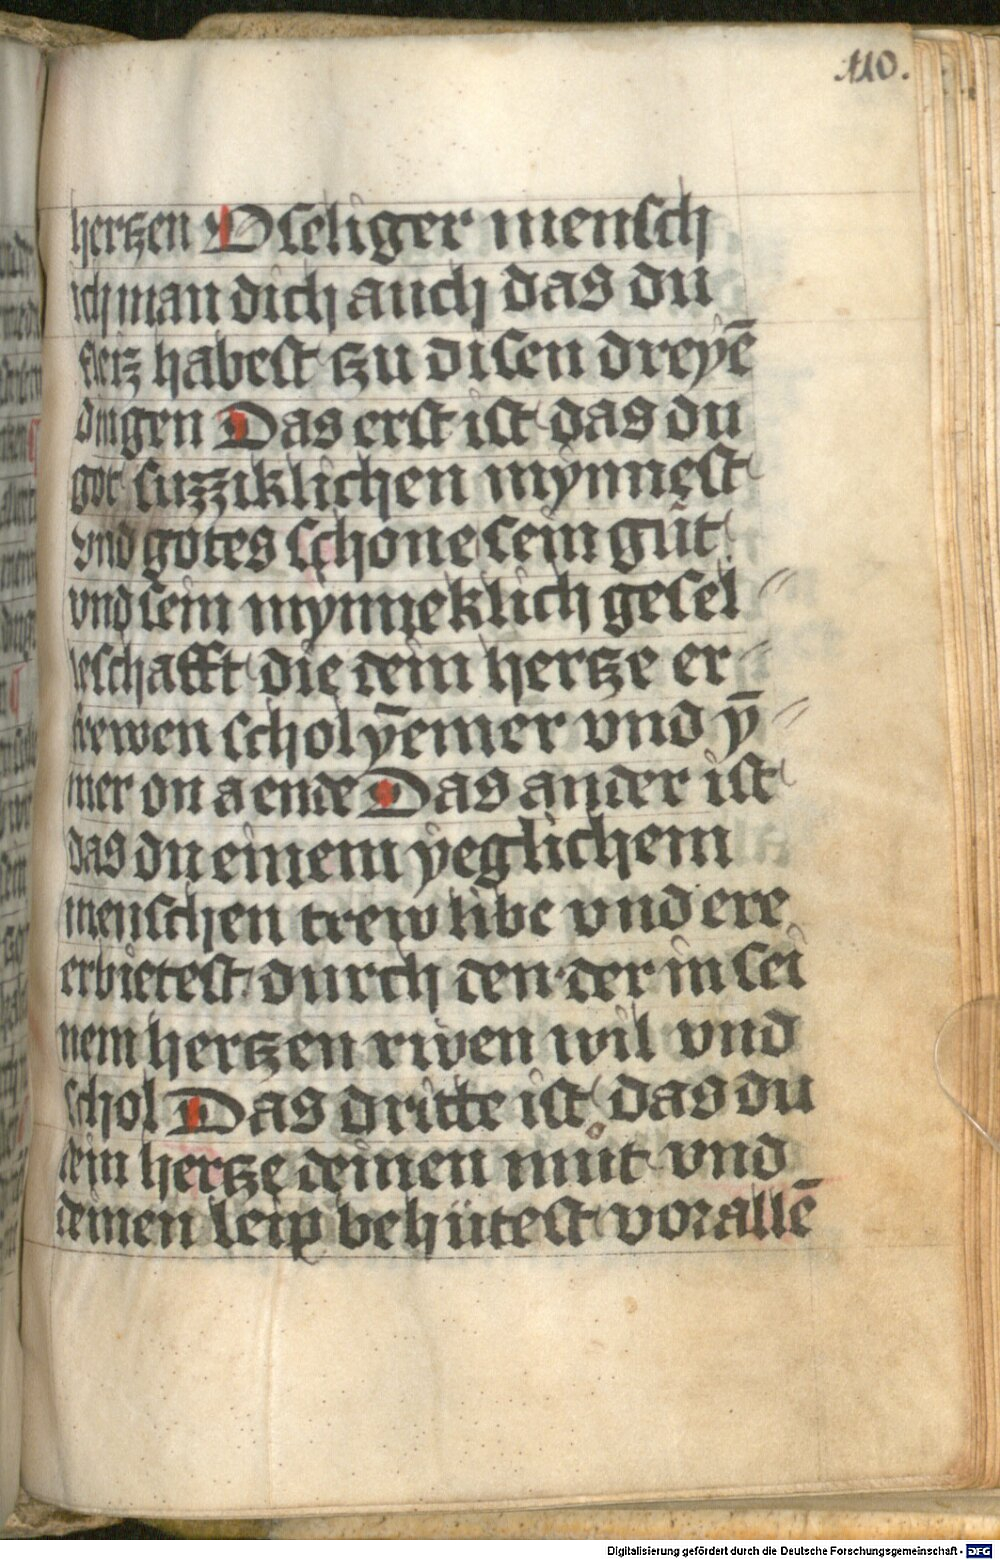 110.
hertzen O seliger mensch
ich man dich auch das du
fleiz habest tzu disen dreyē
dingen Das erst ist das du
got suzziklichen mynnest
vnd gotes schone sein gut
vnd sein mynneklich gesel
leschafft die dein hertze er
frewen schol yēmer vnd ȳ
mer on a ende Das ander ist
das du einem yeglichem
menschen trew libe vnd ere
erbietest durch den der in sei
nem hertzen rwen wil vnd
schol Das dritte ist das du
dein hertze deinen mut vnd
deinen leip behütest vor allē
Digitalisierung gefördert durch die Deutsche Forschungsgemeinschaft - DFG